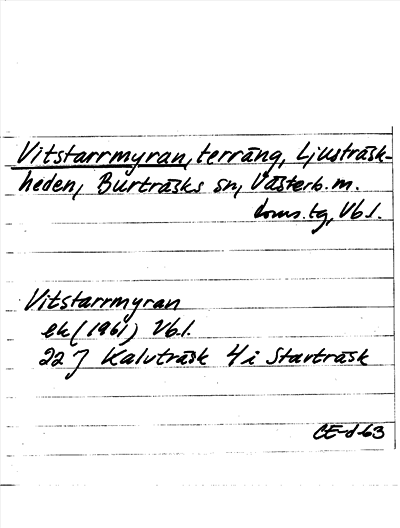 Vitstarrmyran, terräng, Ljusträsk-
heden, Burträsks sn, Västerb. m.
doms. tg, Vb.l.
Vitstarrmyran
ek (1961) Vb.l.
22 J Kalvträsk 4 i Stavträsk